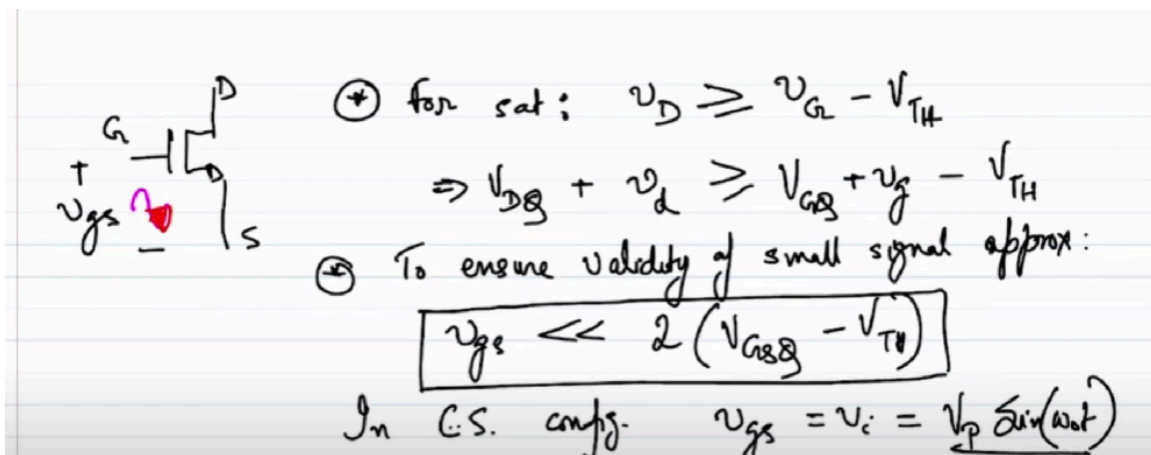 D
G
+
v_gs
−
S
⊛ for sat: v_D ≥ v_G − V_TH
⇒ V_DQ + v_d ≥ V_GQ + v_g − V_TH
⊛ To ensure validity of small signal approx:
v_gs << 2 (V_GSQ − V_TH)
In C.S. config. v_gs = v_i = V_p Sin(ω₀t)